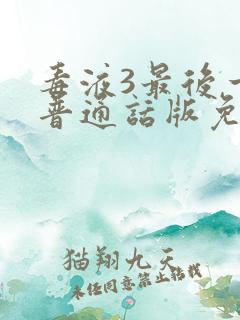 毒液3最后一
普通话版免
猫翔九天
未经同意禁止转载